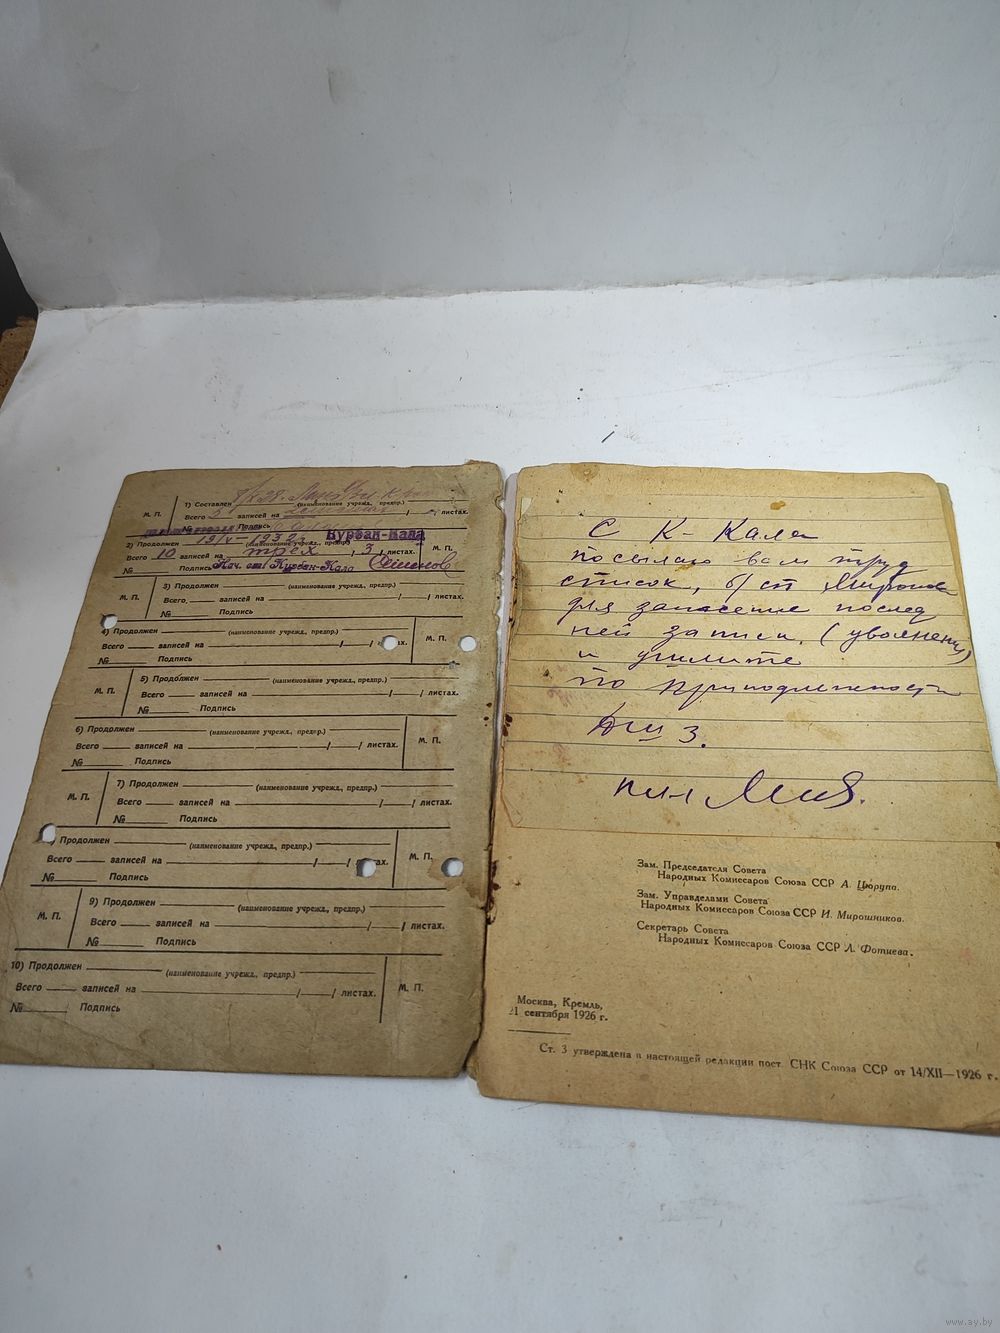 М. П.
1) Составлен 8/X 28.
(наименование учрежд., предпр.)
Всего 5 записей на листах.
№ Подпись
Курбан-Кала
2) Продолжен 19/V-1932 г.
(наименование учрежд., предпр.)
Всего 10 записей на трех /3/ листах.
М. П.
№ Подпись Нач. ст. Курбан-Кала Семенов
3) Продолжен
(наименование учрежд., предпр.)
М. П.
Всего записей на / / листах.
№ Подпись
4) Продолжен
(наименование учрежд., предпр.)
Всего записей на
М. П.
№ Подпись
5) Продолжен
(наименование учрежд., предпр.)
М. П.
Всего записей на / / листах.
№ Подпись
6) Продолжен
(наименование учрежд., предпр.)
Всего записей на / / листах.
М. П.
№ Подпись
7) Продолжен
(наименование учрежд., предпр.)
М. П.
Всего записей на / / листах.
№ Подпись
Продолжен
(наименование учрежд., предпр.)
Всего записей на
М. П.
№ Подпись
9) Продолжен
(наименование учрежд., предпр.)
М. П.
Всего записей на / / листах.
№ Подпись
10) Продолжен
(наименование учрежд., предпр.)
Всего записей на / / листах.
М. П.
№ Подпись
С К-Кала
посылаю вам труд
список, б/ст
для занесение послед
ней записи. (увольнения)
и
по принодлежности
3.
Зам. Председателя Совета
Народных Комиссаров Союза ССР А. Цюрупа.
Зам. Управделами Совета
Народных Комиссаров Союза ССР И. Мирошников.
Секретарь Совета
Народных Комиссаров Союза ССР Л. Фотиева.
Москва, Кремль,
сентября 1926 г.
Ст. 3 утверждена в настоящей редакции пост. СНК Союза ССР от 14/XII—1926 г.
www.ay.by